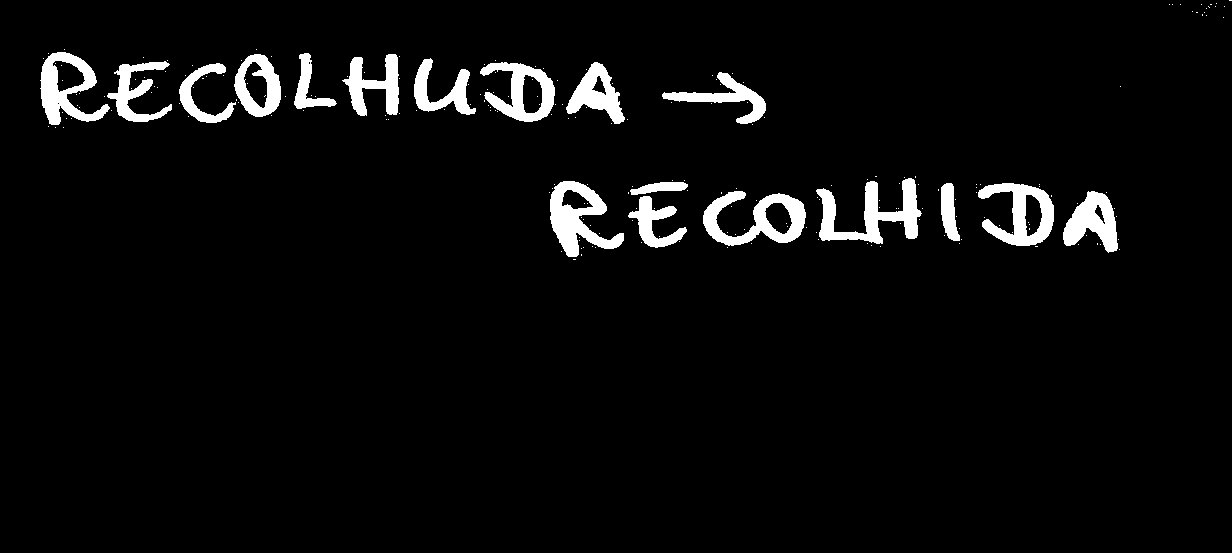 RECOLHUDA →
RECOLHIDA